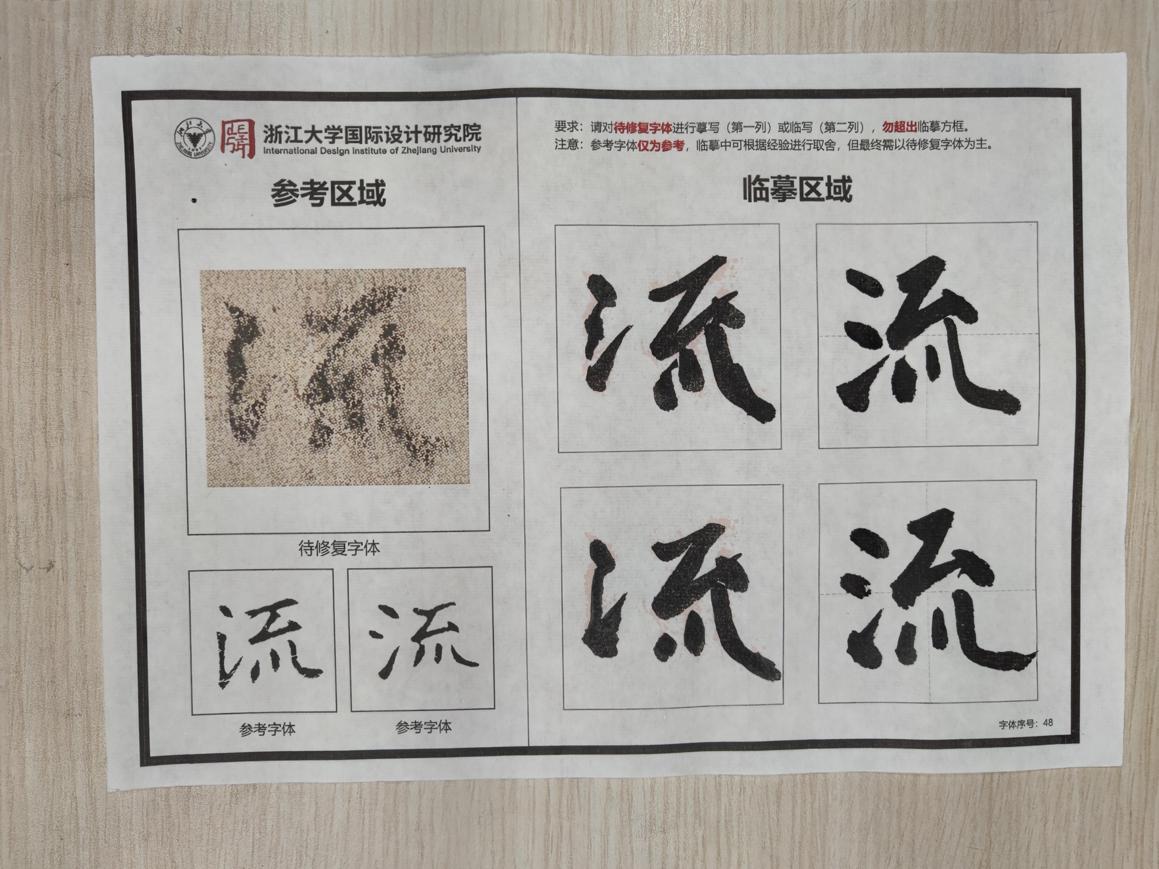 浙江大学国际设计研究院
International Design Institute of Zhejiang University
参考区域
流
待修复字体
流
流
参考字体
参考字体
要求：请对待修复字体进行摹写（第一列）或临写（第二列），勿超出临摹方框。
注意：参考字体仅为参考，临摹中可根据经验进行取舍，但最终需以待修复字体为主。
临摹区域
流
流
流
流
字体序号：48